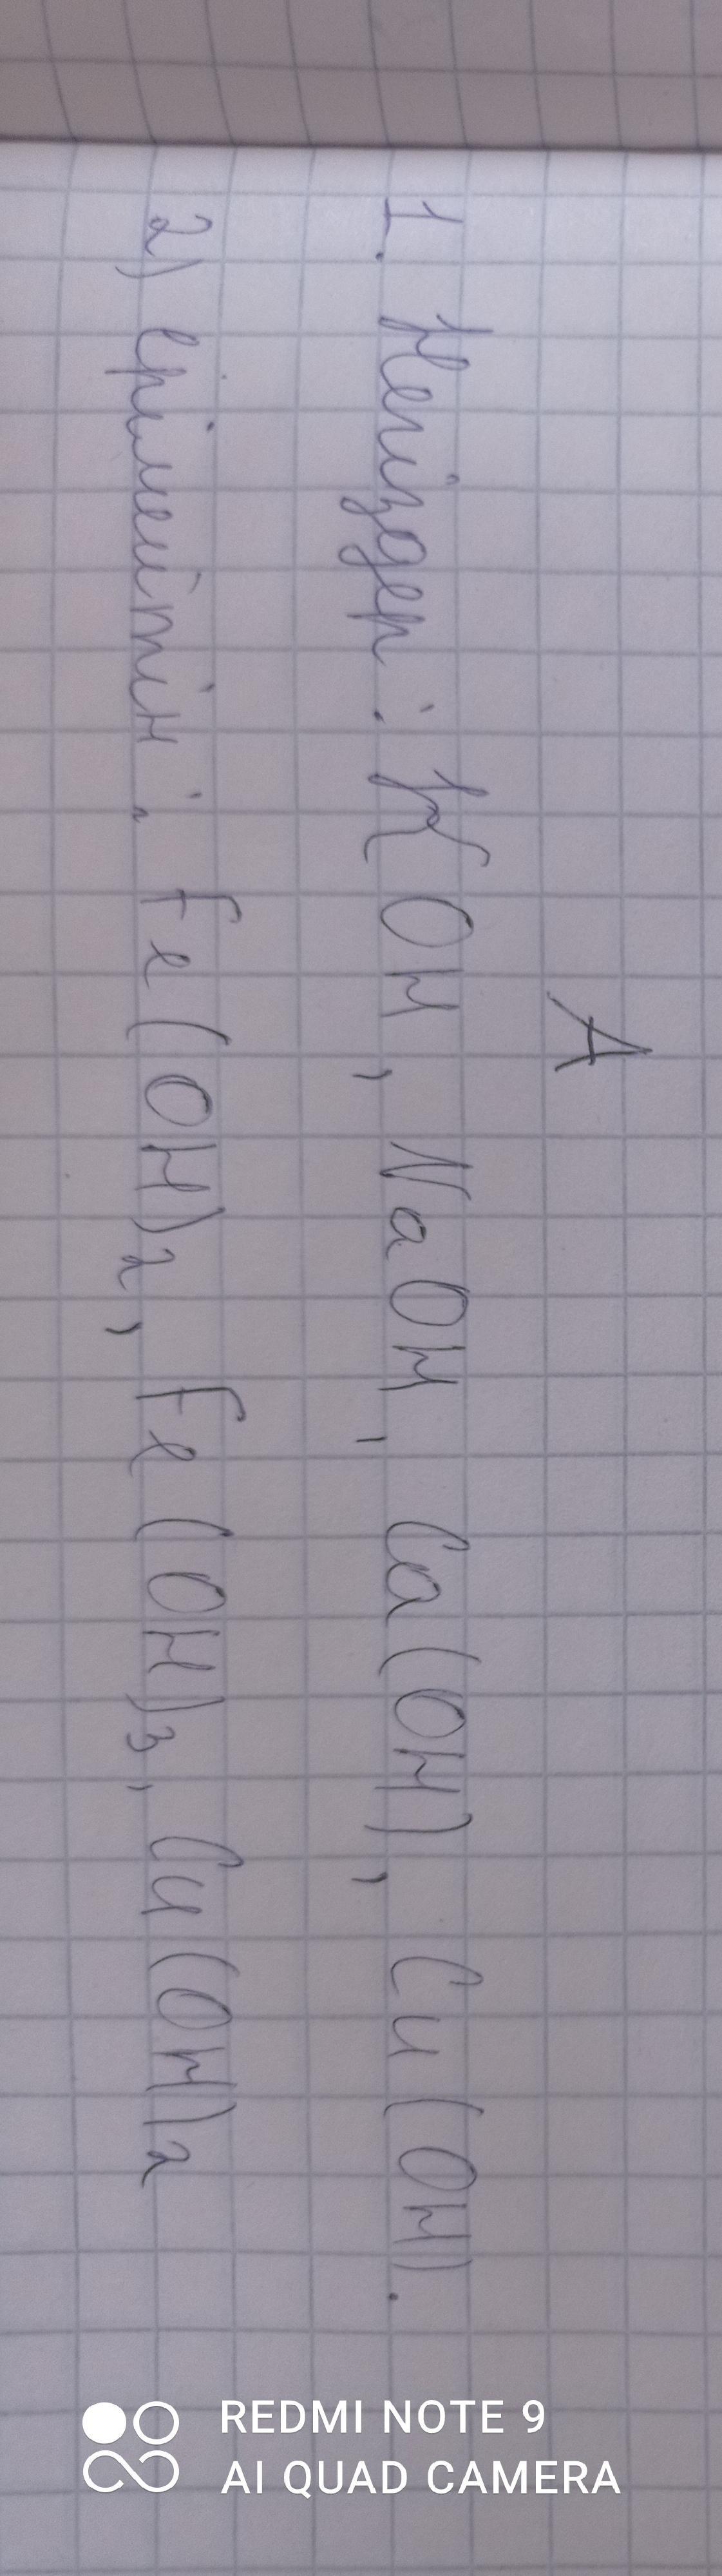 А
1. Негіздер: KOH, NaOH, Ca(OH), Cu(OH).
2) ерімейтін: Fe(OH)2, Fe(OH)3, Cu(OH)2
REDMI NOTE 9
AI QUAD CAMERA